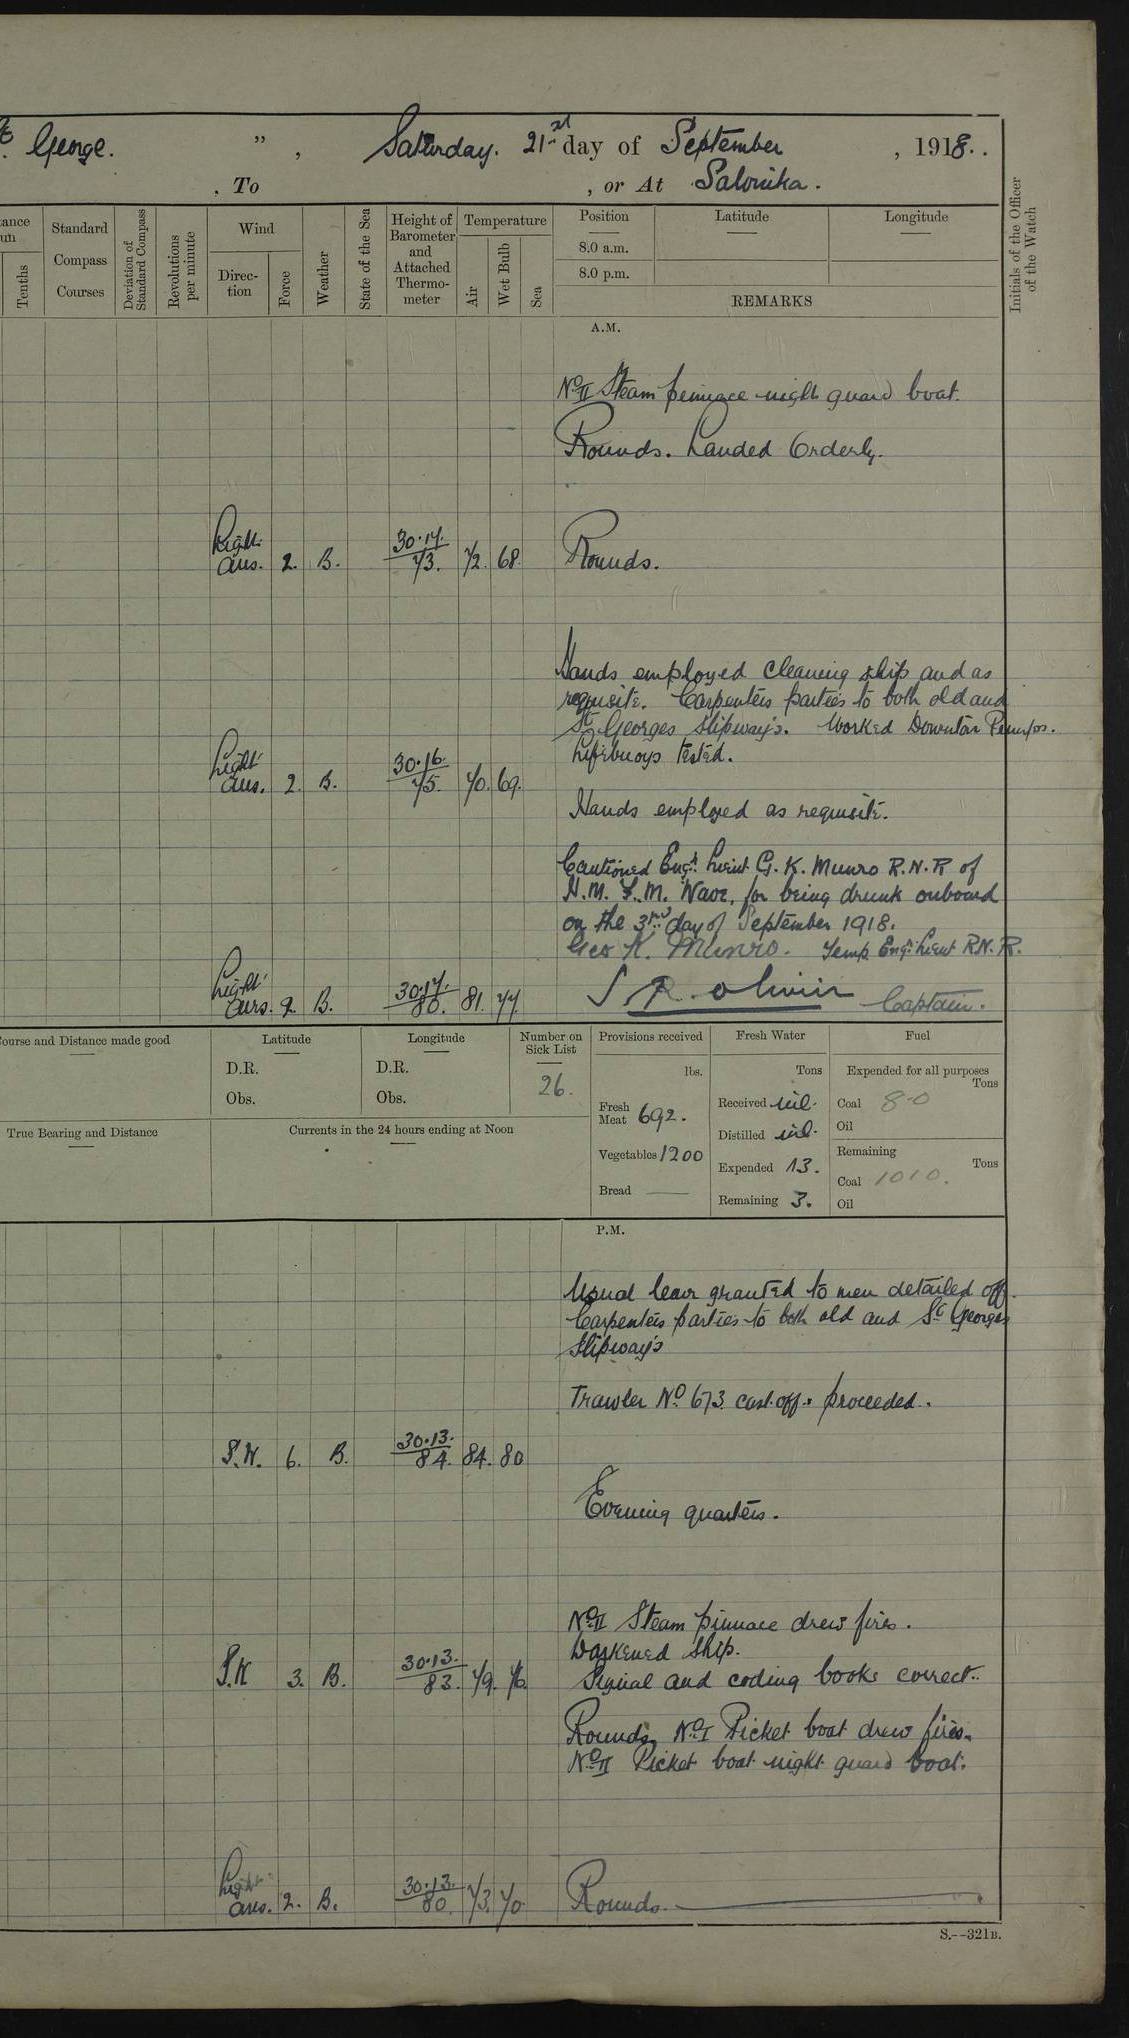 St. George. " , Saturday. 21st day of September , 1918.
, To , or At Salonika.
Standard Compass Courses
Deviation of Standard Compass
Revolutions per minute
Wind
Direction
Force
Weather
State of the Sea
Height of Barometer and Attached Thermometer
Temperature
Air
Wet Bulb
Sea
Tenths
Position Latitude Longitude
8.0 a.m.
8.0 p.m.
REMARKS
Initials of the Officer of the Watch
A.M.
No II Steam pinnace night guard boat.
Rounds. Landed Orderly.
Light
airs. 2. B. 30.17. 73. 72. 68. Rounds.
Hands employed cleaning ship and as
requisite. Carpenters parties to both old and
St Georges slipway's. Worked Downton Pumps.
Lifebuoys tested.
Light
airs. 2. B. 30.16. 75. 70. 69.
Hands employed as requisite.
Cautioned Engr. Lieut G. K. Munro R.N.R of
H.M. F.M. Wave, for being drunk onboard
on the 3rd day of September 1918.
Geo K. Munro. Temp Engr. Lieut R.N.R.
Light
airs. 2. B. 30.17. 80. 81. 77. Captain.
Course and Distance made good
Latitude
D.R.
Obs.
Longitude
D.R.
Obs.
Number on Sick List
26.
Provisions received
lbs.
Fresh Meat 692.
Vegetables 1200
Bread —
Fresh Water
Tons
Received nil.
Distilled nil.
Expended 13.
Remaining 3.
Fuel
Expended for all purposes
Tons
Coal 8-0
Oil
Remaining
Tons
Coal 1010.
Oil
True Bearing and Distance
Currents in the 24 hours ending at Noon
P.M.
Usual leave granted to men detailed off.
Carpenters parties to both old and St Georges
slipway's
Trawler No. 673 cast off & proceeded.
S.W. 6. B. 30.13. 84. 84. 80
Evening quarters.
No II Steam pinnace drew fires.
Darkened ship.
3. B. 30.13. 83. 79. 76. Signal and coding books correct.
Rounds, No I Picket boat drew fires.
No II Picket boat night guard boat.
Light
airs. 2. B. 30.13. 80. 73. 70. Rounds.
S.--321B.